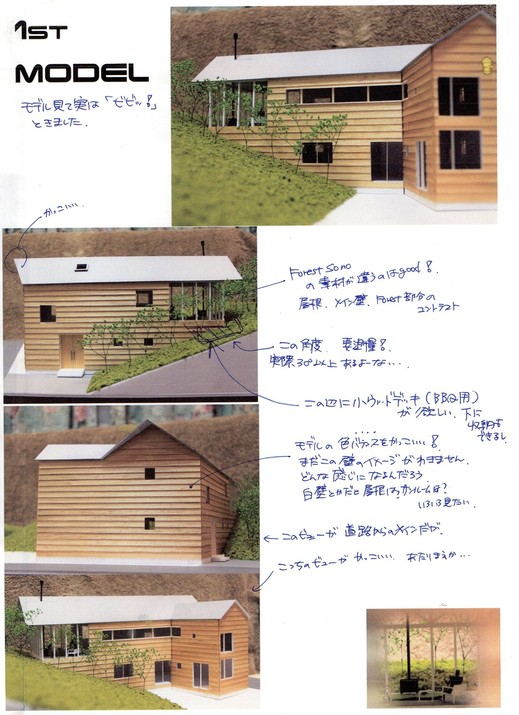 1ST
MODEL
モデル見て実は「ビビッ!」
ときました.
かっこいい.
Forest Sono
の素材が違うのはgood!
屋根、メイン壁、Forest部分の
コントラスト
この角度 要注意!
実際30°以上あるよーな...
この辺に小ウッドデッキ(BBQ用)
が欲しい. 下に
収納も
できるし
モデルの色バランスもかっこいい!
まだこの壁のイメージがわきません.
どんな感じになるんだろう
白壁とかだと屋根は
いろいろ見たい.
このビューが道路からのメインだが.
こっちのビューがかっこいい. あたりまえか...